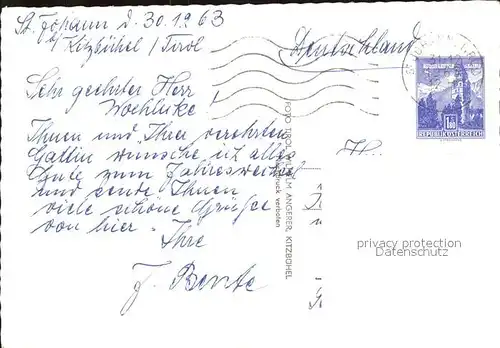 St. Johann d. 30.12.63
b/ Kitzbühel / Tirol
Deutschland
Sehr geehrter Herr
Wochluke!
Ihnen und Ihrer verehrten
Gattin wünsche ich alles
Gute zum Jahreswechsel
und sende Ihnen
viele schöne Grüße
von hier. Ihre
F. Bente
FOTO TIROL WILHELM ANGERER, KITZBÜHEL
Nachdruck verboten
H
1.80
REPUBLIK ÖSTERREICH
privacy protection
Datenschutz